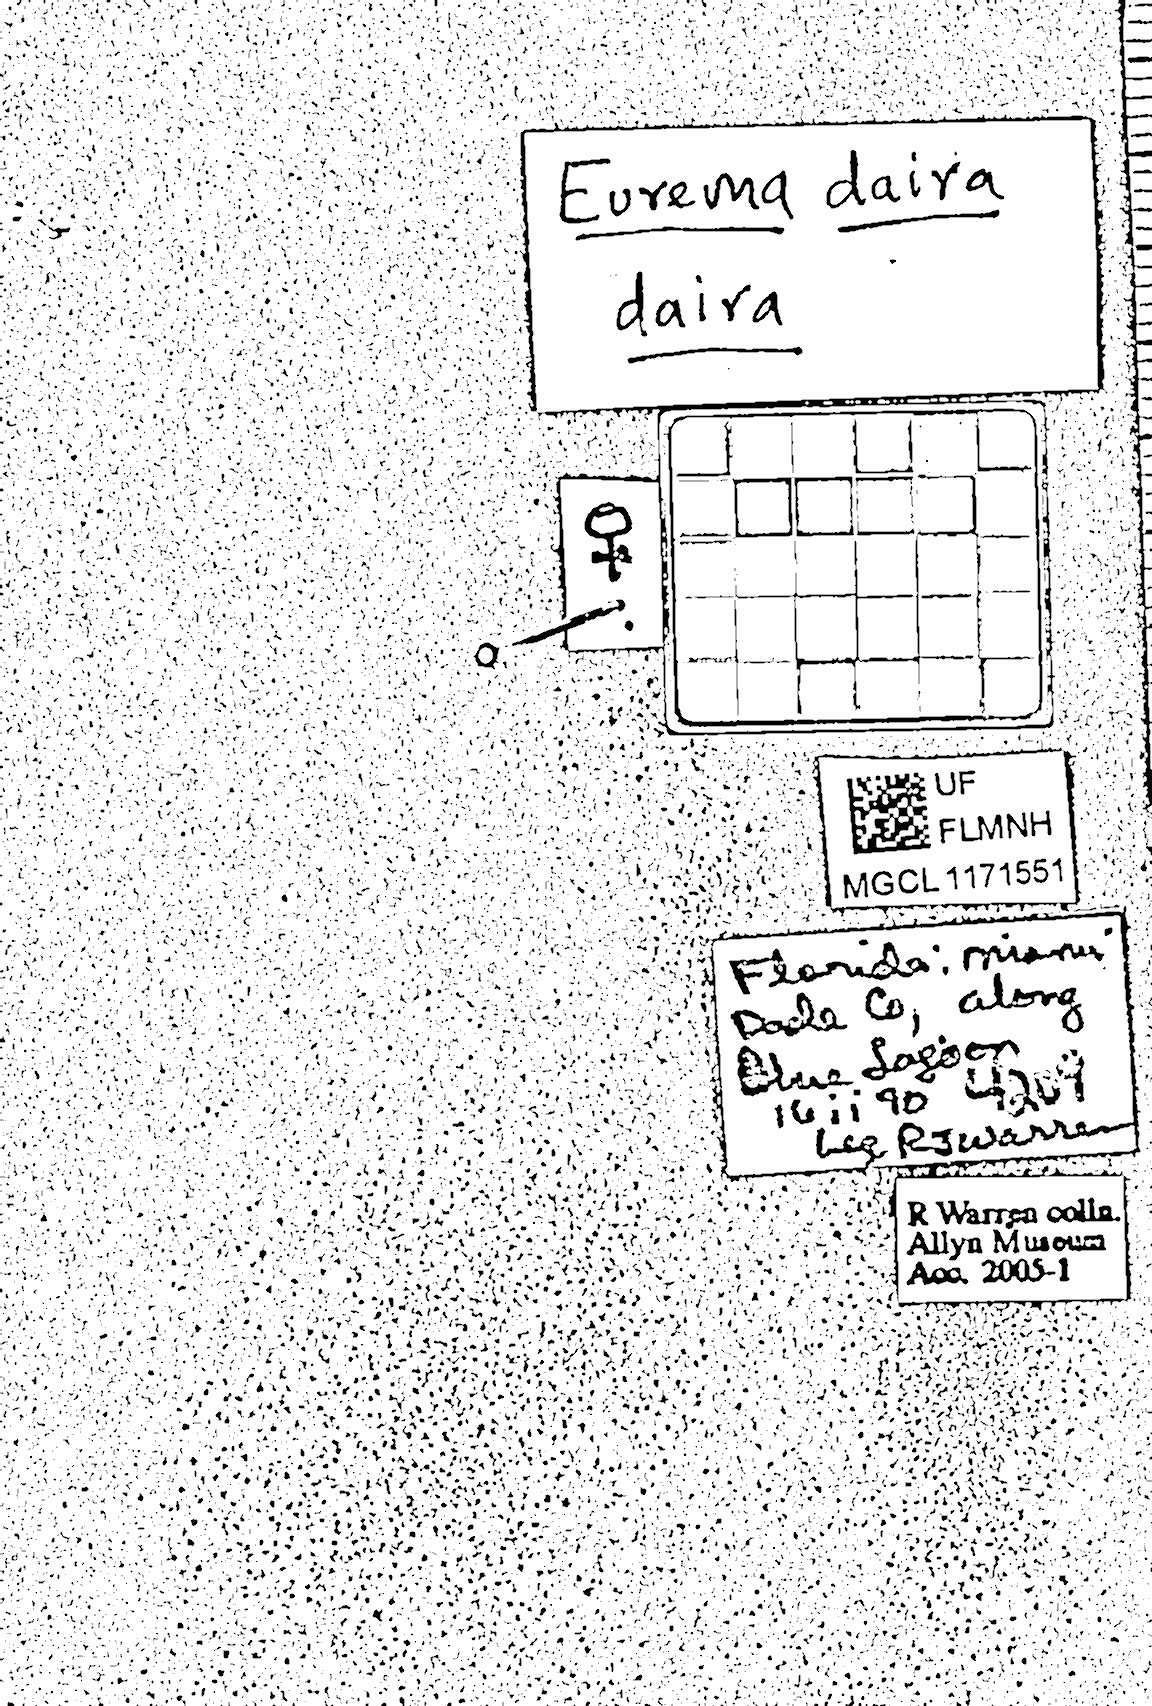 Eurema daira
daira
♀
UF
FLMNH
MGCL 1171551
Florida: Miami
Dade Co, along
Blue Lagoon
16 ii 90
Leg R J Warren
R Warren colln.
Allyn Museum
Acc. 2005-1